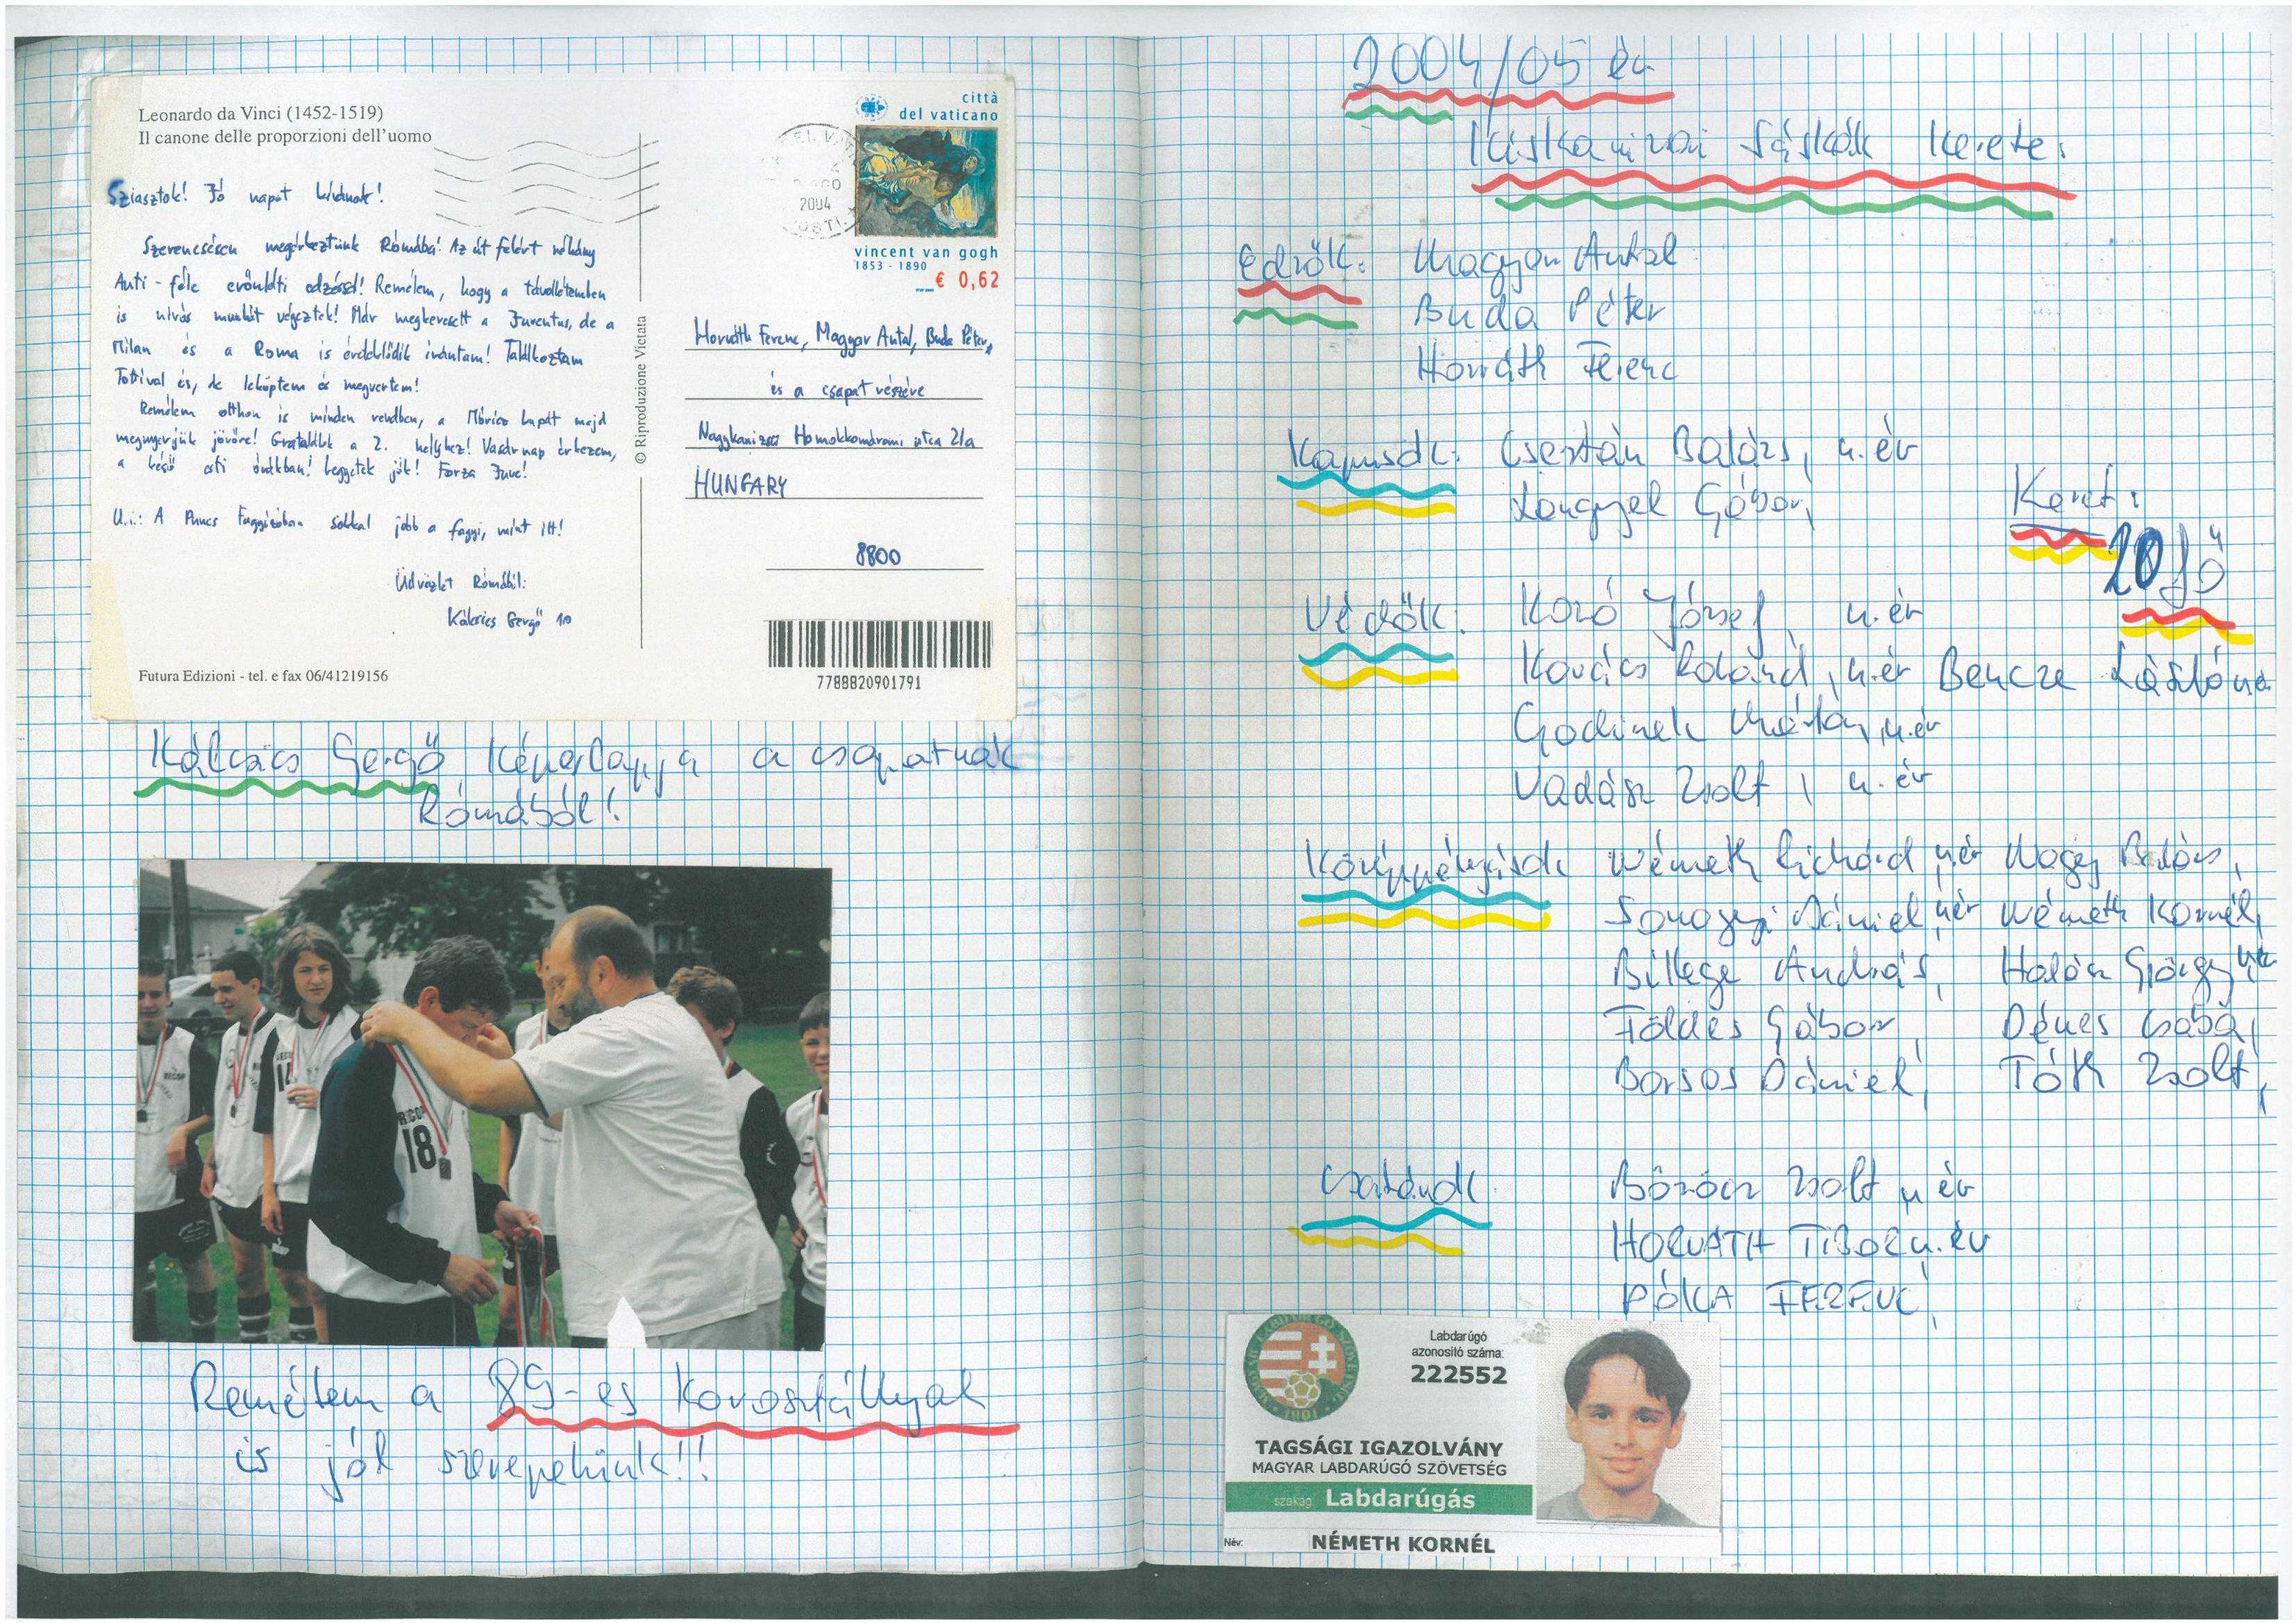 Leonardo da Vinci (1452-1519)
Il canone delle proporzioni dell'uomo
città
del vaticano
2004
vincent van gogh
1853 - 1890
€ 0,62
Sziasztok! Jó napot kívánok!
Szerencsésen megérkeztünk Rómába! Az út felért néhány
Anti-féle erőnléti edzéssel! Remélem, hogy a távollétemben
is nívós munkát végeztek! Már megkeresett a Juventus, de a
Milan és a Roma is érdeklődik irántam! Találkoztam
Tottival és, de leköptem és megvertem!
Remélem otthon is minden rendben, a Móricz kupát majd
megnyerjük jövőre! Gratulálok a 2. helyhez! Vasárnap érkezem,
a késő esti órákban! Legyetek jók! Forza Juve!
U.i.: A Fagyizóban sokkal jobb a fagyi, mint itt!
Üdvözlet Rómából:
Kálcsics Gergő 10
Futura Edizioni - tel. e fax 06/41219156
© Riproduzione Vietata
Horváth Ferenc, Magyar Antal, Buda Péter,
és a csapat részére
Nagykanizsa Homokkomáromi utca 2/a
HUNGARY
8800
7788820901791
Gergő képeslapja a csapatnak
Rómából!
18
Remélem a 89-es korosztállyal
is jól szerepelünk!!
2004/05 év
Kiskanizsai Sáskák kerete:
Edzők: Magyar Antal
Buda Péter
Horváth Ferenc
Kapusok: Csertán Balázs, u.év
Lengyel Gábor,
Keret:
20 fő
Védők: Kozó József, u.év
Kovács Roland, u.év Bencze László
Godinek Márton, u.év
Vadász Zsolt, u.év
Középpályások Németh Richárd, u.év Nagy Balázs,
Somogyi Dániel, u.év Németh Kornél,
Billege András, Halász György
Földes Gábor, Dénes Csaba,
Borsos Dániel, Tóth Zsolt,
Csatárok Böröcz Zsolt u.év
HORVÁTH TIBOR u.év
PÓLKA FERENC,
MAGYAR LABDARÚGÓ SZÖVETSÉG
1901
Labdarúgó
azonosító száma:
222552
TAGSÁGI IGAZOLVÁNY
MAGYAR LABDARÚGÓ SZÖVETSÉG
szakág: Labdarúgás
Név: NÉMETH KORNÉL